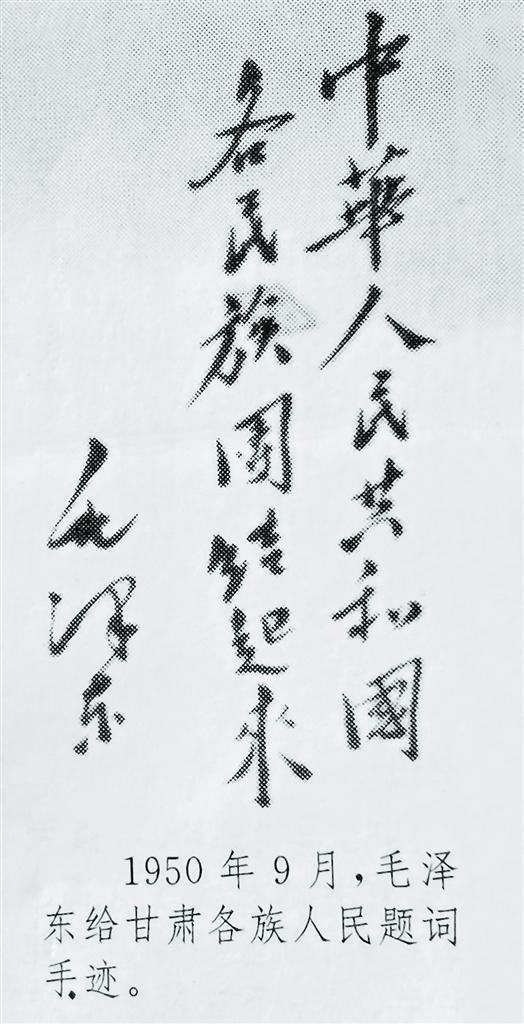 中華人民共和國
各民族團結起來
毛澤东
1950年9月,毛泽
东给甘肃各族人民题词
手迹。